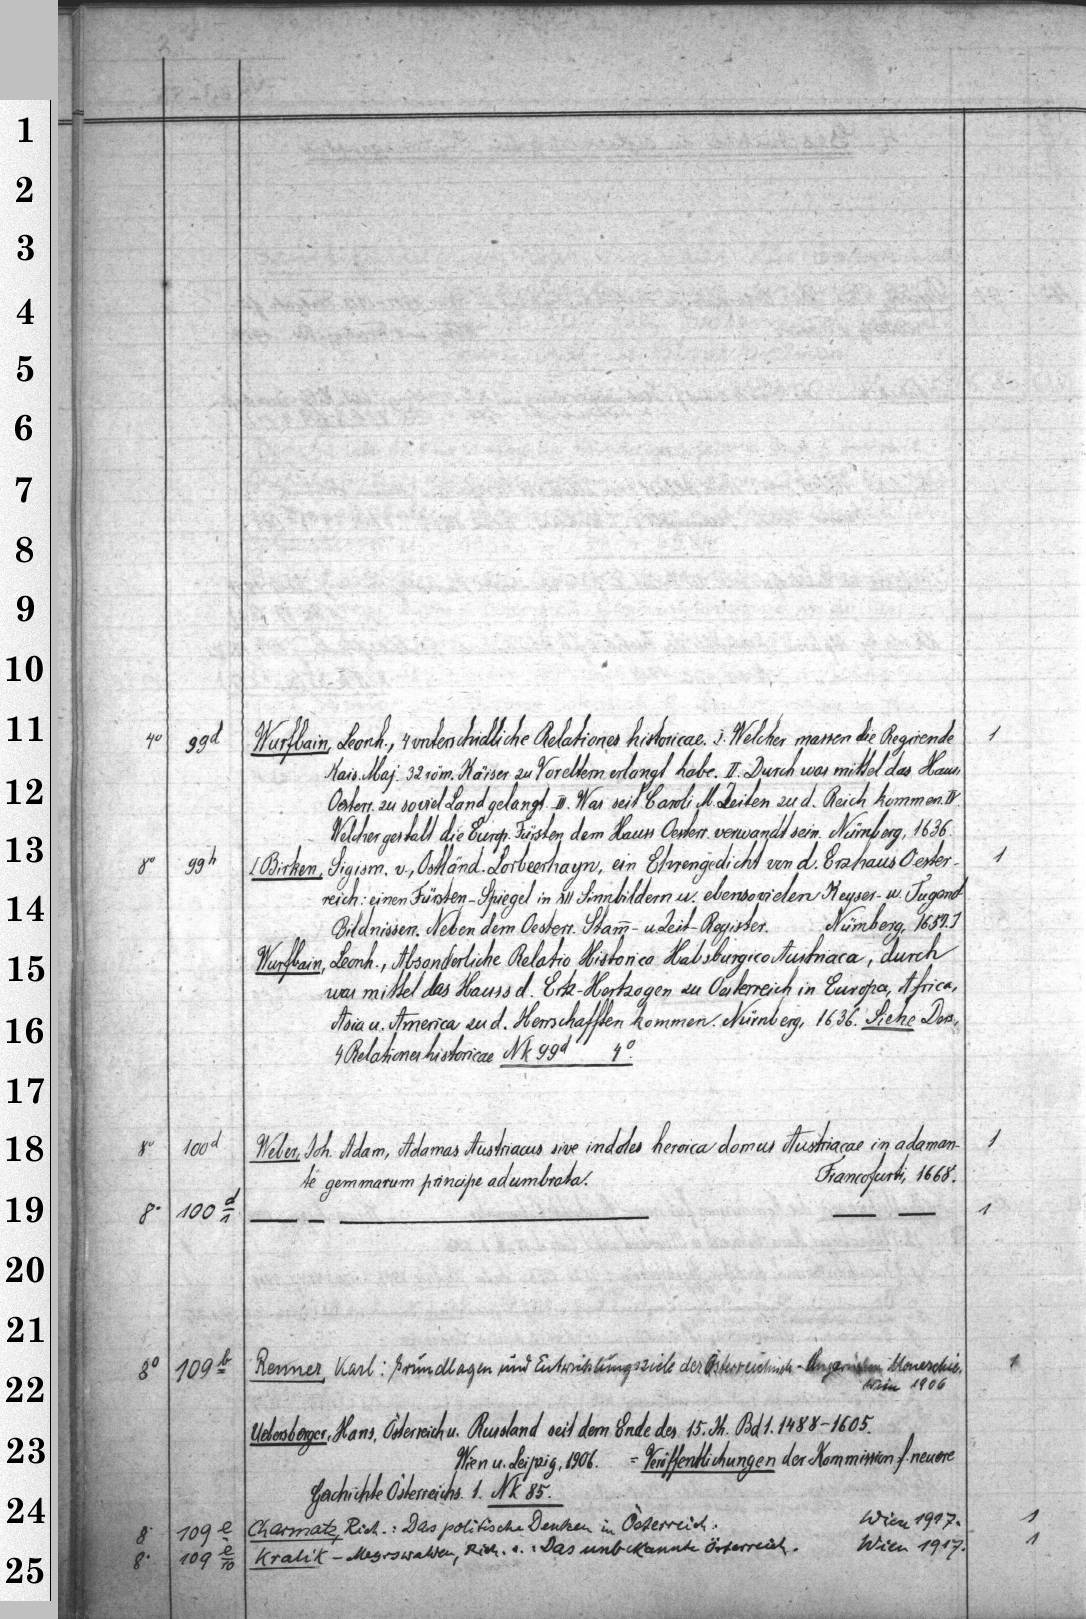 1
2
3
4
5
6
7
8
9
10
11
12
13
14
15
16
17
18
19
20
21
22
23
24
25
4° 99d Wurfbain, Leonh., 4 unterschidliche Relationes historicae. I. Welcher massen die Regirende 1
Kais. Maj. 32 röm. Käiser zu Voreltern erlangt habe. II. Durch was mittel das Haus
Oesterr. zu soviel Land gelangt. III. Was seit Caroli M. Zeiten zu d. Reich kommen. IV.
Welcher gestalt die Europ. Fürsten dem Hauss Oesterr. verwandt sein. Nürnberg, 1636.
8° 99h [Birken, Sigism. v., Ostländ. Lorbeerhayn, ein Ehrengedicht von d. Erzhaus Oester- 1
reich: einen Fürsten-Spiegel in XII Sinnbildern u. ebensovielen Keyser- u. Tugend
Bildnissen. Neben dem Oesterr. Stam̅- u Zeit-Register. Nürnberg, 1657.]
Wurfbain, Leonh., Absonderliche Relatio Historica Habsburgico Austriaca, durch
was mittel das Hauss d. Ertz-Hertzogen zu Oesterreich in Europa, Africa,
Asia u. America zu d. Herrschafften kommen. Nürnberg, 1636. Siehe Dess.
4 Relationes historicae Nk 99d 4°.
8° 100d Weber, Joh. Adam, Adamas Austriacus sive indoles heroica domus Austriacae in adaman- 1
te gemmarum principe adumbrata. Francofurti, 1668.
8° 100 d/1 — — — — — 1
8° 109 b Renner, Karl: Grundlagen und Entwicklungsziele der Österreichisch-Ungarischen Monarchie. 1
Wien 1906
Uebersberger, Hans, Österreich u. Russland seit dem Ende des 15. Jh. Bd 1. 1488-1605.
Wien u. Leipzig, 1906. = Veröffentlichungen der Kommission f. neuere
Geschichte Österreichs. 1. Nk 85.
8° 109 e Charmatz, Rich.: Das politische Denken in Österreich. Wien 1917. 1
8° 109 e/10 Kralik - Rich. v.: Das unbekannte Österreich. Wien 1917. 1